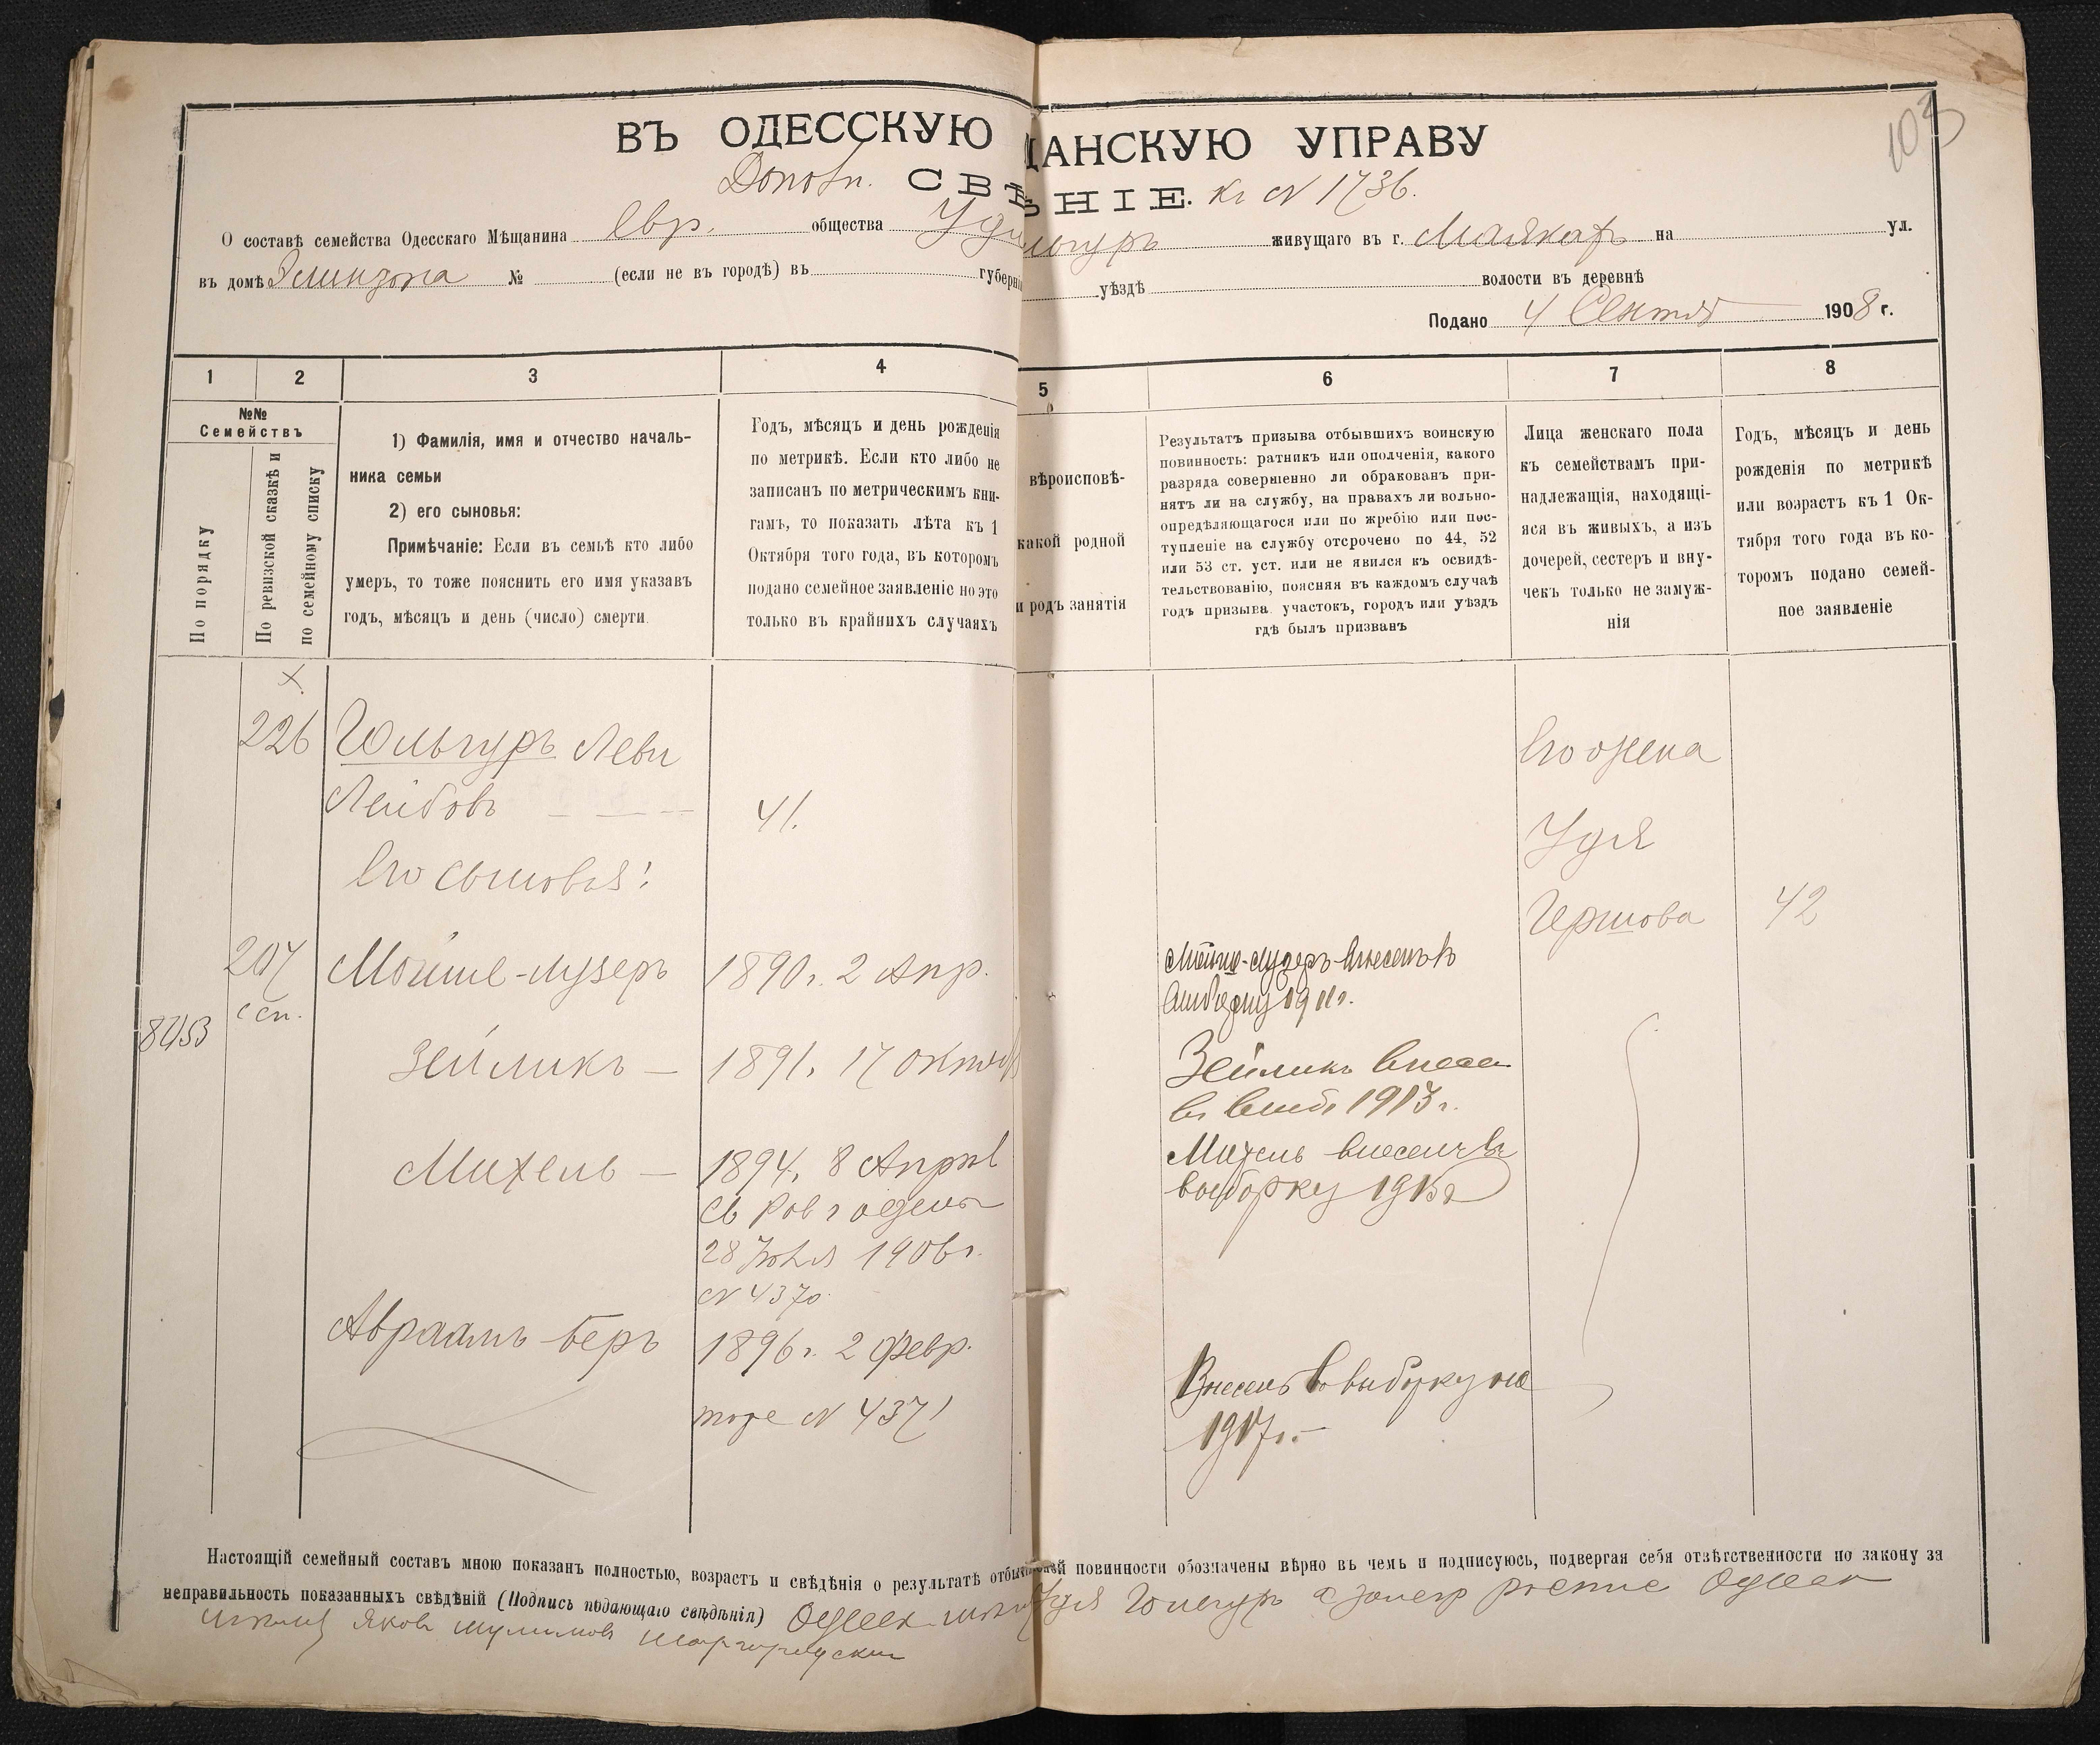 103
ВЪ ОДЕССКУЮ ЩАНСКУЮ УПРАВУ
Дополн. СВѢ НІЕ. къ N 1736.
О составѣ семейства Одесскаго Мѣщанина Евр. общества живущаго въ г. Маякахъ на ул.
въ домѣ № (если не въ городѣ) въ губерні уѣздѣ волости въ деревнѣ
Подано 4 Сентяб 1908 г.
1 2 3 4 5 6 7 8
№№
Семействъ
По порядку
По ревизской сказкѣ и
по семейному списку
1) Фамилія, имя и отчество началь-
ника семьи
2) его сыновья:
Примѣчаніе: Если въ семьѣ кто либо
умеръ, то тоже пояснить его имя указавъ
годъ, мѣсяцъ и день (число) смерти.
Годъ, мѣсяцъ и день рожденія
по метрикѣ. Если кто либо не
записанъ по метрическимъ кни-
гамъ, то показать лѣта къ 1
Октября того года, въ которомъ
подано семейное заявленіе но это
только въ крайнихъ случаяхъ
вѣроисповѣ-
какой родной
и родъ занятія
Результатъ призыва отбывшихъ воинскую
повинность: ратникъ или ополченія, какого
разряда совершенно ли обракованъ при-
нятъ ли на службу, на правахъ ли вольно-
опредѣляющагося или по жребію или пос-
тупленіе на службу отсрочено по 44, 52
или 53 ст. уст. или не явился къ освидѣ-
тельствованію, поясняя въ каждомъ случаѣ
годъ призыва. участокъ, городъ или уѣздъ
гдѣ былъ призванъ
Лица женскаго пола
къ семействамъ при-
надлежащія, находящі-
яся въ живыхъ, а изъ
дочерей, сестеръ и вну-
чекъ только не замуж-
нія
Годъ, мѣсяцъ и день
рожденія по метрикѣ
или возрастъ къ 1 Ок-
тября того года въ ко-
торомъ подано семей-
ное заявленіе
226 Гольгуръ Леви
Лейбовъ 41.
Его сыновья:
Его жена
Удя
Гершова 42
207
ссп.
8453
Мойше-лузеръ 1890 г. 2 Апр.
Мойше-Лузеръ внесенъ въ
выборку 1911 г.
Зейликъ — 1891. 17 Октяб
Зейликъ внесен
въ выб. 1913 г.
Михель — 1894. 8 Апрѣл
28 Іюля 1906 г.
N 4370
Михель внесенъ въ
выборку 1915 г
Авраамъ-Беръ 1896 г. 2 февр.
тоже N 4371
Внесенъ въ выборку на
1917 г.
Настоящій семейный составъ мною показанъ полностью, возрастъ и свѣдѣнія о результатѣ отбы ской повинности обозначены вѣрно въ чемъ и подписуюсь, подвергая себя отвѣтственности по закону за
неправильность показанныхъ свѣдѣній (Подпись подающаго свѣдѣнія) Удя Гольгуръ